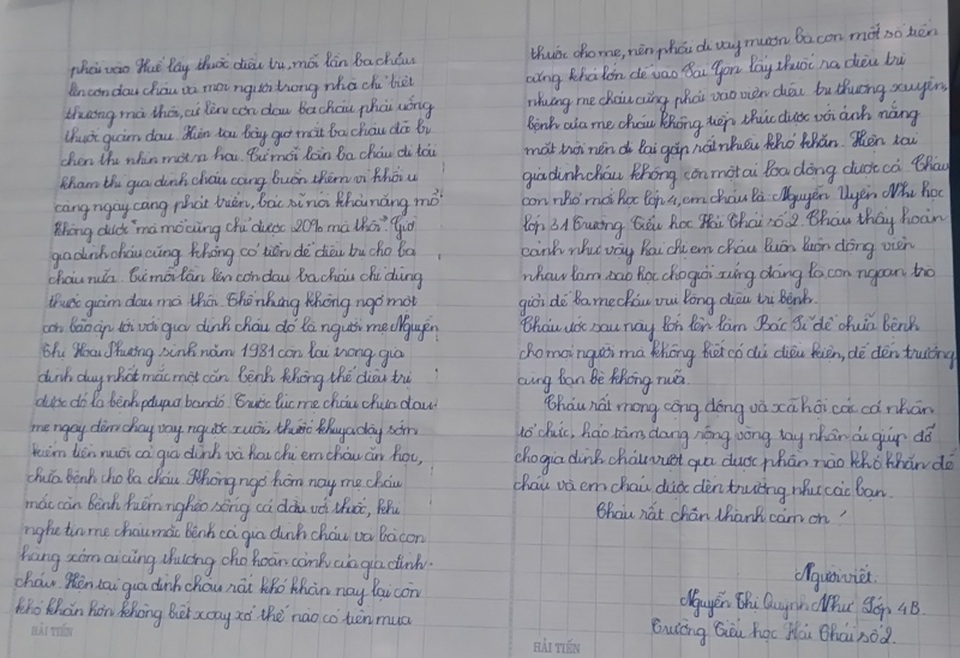 phải vào Huế lấy thuốc điều trị, mỗi lần ba cháu
lên cơn đau cháu và mọi người trong nhà chỉ biết
thương mà thôi, cứ lên cơn đau ba cháu phải uống
thuốc giảm đau. Hiện tại bây giờ mắt ba cháu đã bị
chèn thì nhìn một ra hai. Cứ mỗi lần ba cháu đi tái
khám thì gia đình cháu càng buồn thêm vì khối u
càng ngày càng phát triển, bác sĩ nói khả năng mổ
không được "mà mổ cũng chỉ được 20% mà thôi". Giờ
gia đình cháu cũng không có tiền để điều trị cho ba
cháu nữa. Cứ mỗi lần lên cơn đau ba cháu chỉ dùng
thuốc giảm đau mà thôi. Thế nhưng không ngờ một
cơn bão ập tới với gia đình cháu đó là người mẹ Nguyễn
Thị Hoài Phương sinh năm 1981 còn lại trong gia
đình duy nhất mắc một căn bệnh không thể điều trị
được đó là bệnh pdupa bandỏ. Trước lúc mẹ cháu chưa đau
mẹ ngày đêm chạy vạy ngược xuôi, thức khuya dậy sớm
kiếm tiền nuôi cả gia đình và hai chị em cháu ăn học,
chữa bệnh cho ba cháu. Không ngờ hôm nay mẹ cháu
mắc căn bệnh hiểm nghèo sống cả đời với thuốc, khi
nghe tin mẹ cháu mắc bệnh cả gia đình cháu và bà con
hàng xóm ai cũng thương cho hoàn cảnh của gia đình
cháu. Hiện tại gia đình cháu rất khó khăn nay lại còn
khó khăn hơn không biết xoay xở thế nào có tiền mua
HẢI TIẾN
thuốc cho mẹ, nên phải đi vay mượn bà con một số tiền
cũng khá lớn để vào Sài Gòn lấy thuốc ra điều trị
nhưng mẹ cháu cũng phải vào viện điều trị thường xuyên,
bệnh của mẹ cháu không tiếp thức được với ánh nắng
mặt trời nên đi lại gặp rất nhiều khó khăn. Hiện tại
gia đình cháu không còn một ai lao động được cả. Cháu
còn nhỏ mới học lớp 4, em cháu là Nguyễn Uyên Nhi học
lớp 3A Trường Tiểu học Hải Thái số 2. Cháu thấy hoàn
cảnh như vậy hai chị em cháu luôn luôn động viên
nhau làm sao học cho giỏi xứng đáng là con ngoan, trò
giỏi để ba mẹ cháu vui lòng điều trị bệnh.
Cháu ước sau này lớn lên làm Bác Sĩ để chữa bệnh
cho mọi người mà không biết có đủ điều kiện, để đến trường
cùng bạn bè không nữa.
Cháu rất mong cộng đồng và xã hội các cá nhân
tổ chức, hảo tâm, dang rộng vòng tay nhân ái giúp đỡ
cho gia đình cháu vượt qua được phần nào khó khăn để
cháu và em cháu được đến trường như các bạn.
Cháu rất chân thành cảm ơn!
Người viết
Nguyễn Thị Quỳnh Như Lớp 4B.
Trường Tiểu học Hải Thái số 2.
HẢI TIẾN